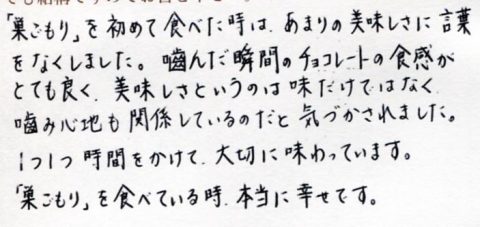 「巣ごもり」を初めて食べた時は、あまりの美味しさに言葉
をなくしました。噛んだ瞬間のチョコレートの食感が
とても良く、美味しさというのは味だけではなく
噛み心地も関係しているのだと気づかされました。
1つ1つ時間をかけて、大切に味わっています。
「巣ごもり」を食べている時、本当に幸せです。